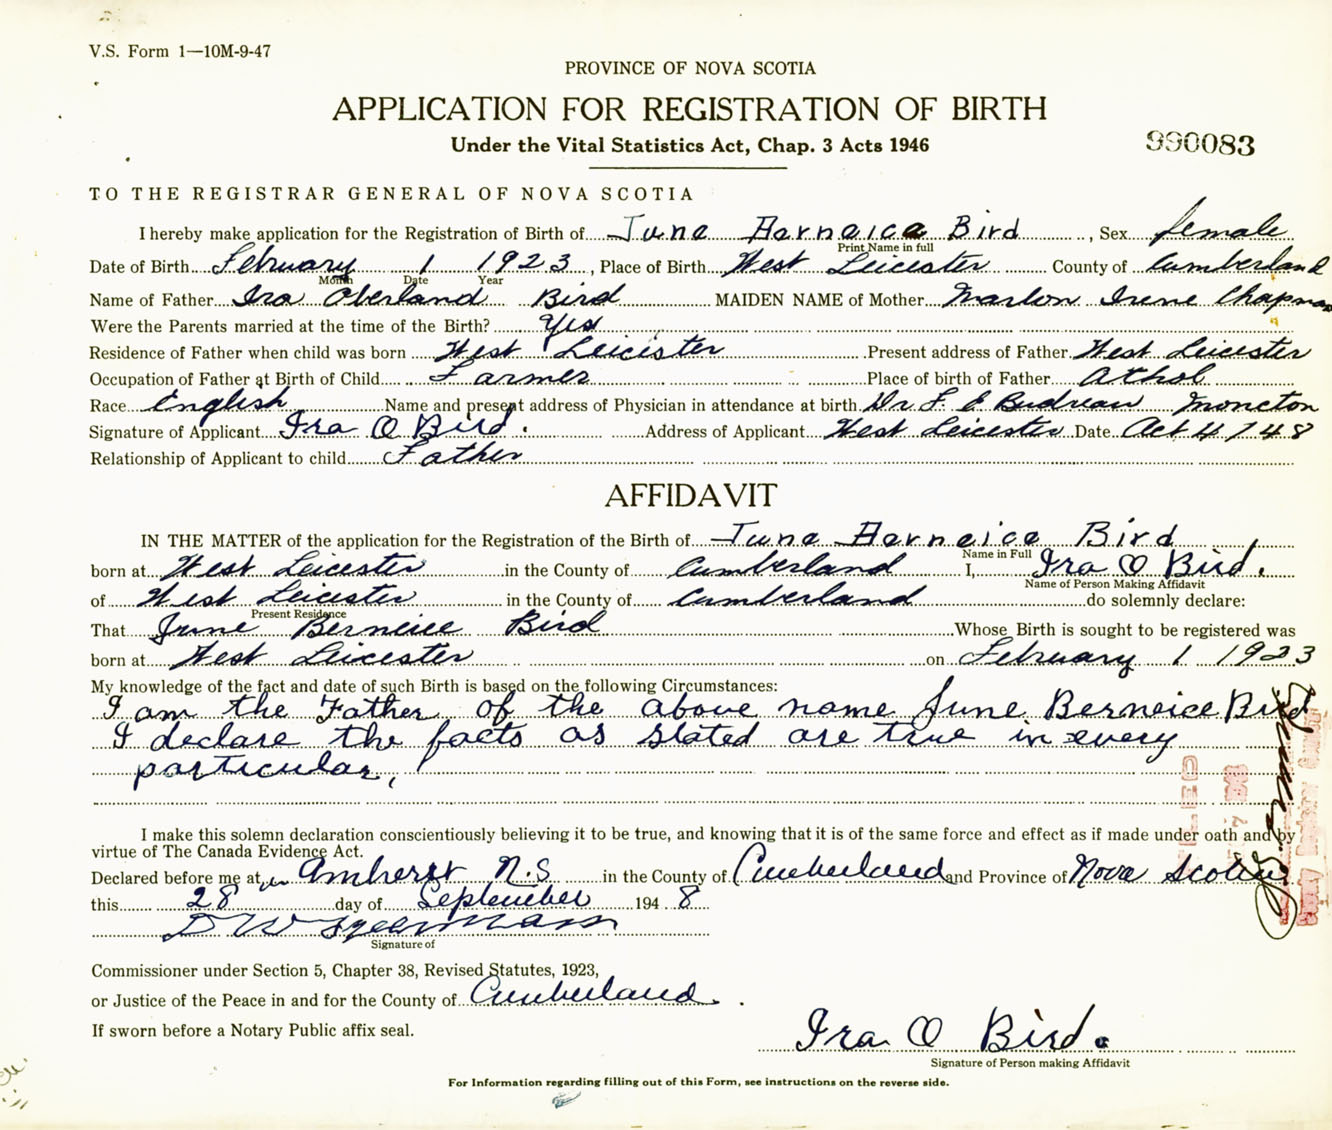 V.S. Form 1—10M-9-47
PROVINCE OF NOVA SCOTIA
APPLICATION FOR REGISTRATION OF BIRTH
Under the Vital Statistics Act, Chap. 3 Acts 1946
990083
TO THE REGISTRAR GENERAL OF NOVA SCOTIA
I hereby make application for the Registration of Birth of June Berneice Bird, Sex female
Print Name in full
Date of Birth February 1 1923, Place of Birth West Leicester County of Cumberland
Month Date Year
Name of Father Ira Oberland Bird MAIDEN NAME of Mother Marlon Irene Chapman
Were the Parents married at the time of the Birth? Yes
Residence of Father when child was born West Leicister Present address of Father West Leicester
Occupation of Father at Birth of Child Farmer Place of birth of Father Athol
Race English Name and present address of Physician in attendance at birth Dr Moncton
Signature of Applicant Ira O Bird. Address of Applicant West Leicester Date Oct 4 1948
Relationship of Applicant to child Father
AFFIDAVIT
IN THE MATTER of the application for the Registration of the Birth of June Berneice Bird,
Name in Full
born at West Leicester in the County of Cumberland I, Ira O Bird.
Name of Person Making Affidavit
of West Leicester in the County of Cumberland do solemnly declare:
Present Residence
That June Berneice Bird Whose Birth is sought to be registered was
born at West Leicester on February 1 1923
My knowledge of the fact and date of such Birth is based on the following Circumstances:
I am the Father of the above name June Berneice Bird
I declare the facts as stated are true in every
particular,
I make this solemn declaration conscientiously believing it to be true, and knowing that it is of the same force and effect as if made under oath and by
virtue of The Canada Evidence Act.
Declared before me at Amherst N.S in the County of Cumberland and Province of Nova Scotia
this 28 day of September 1948
Signature of
Commissioner under Section 5, Chapter 38, Revised Statutes, 1923,
or Justice of the Peace in and for the County of Cumberland.
If sworn before a Notary Public affix seal.
Ira O Bird.
Signature of Person making Affidavit
For Information regarding filling out of this Form, see instructions on the reverse side.